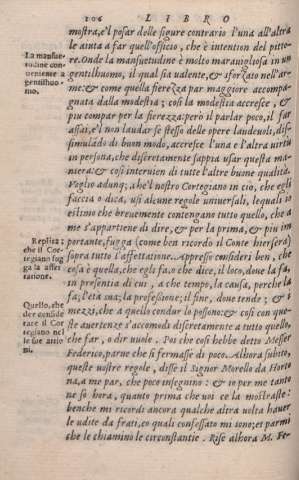 106 LIBRO
mostra, e'l posar delle figure contrario l'una all'altra
le aiuta a far quell'officio, che è intention del pitto-
re. Onde la mansuetudine è molto marauigliosa in un
gentilhuomo, il qual sia ualente, & sforzato nell'ar-
me: & come quella fierezza par maggiore accompa-
gnata dalla modestia; cosi la modestia accresce, &
piu compar per la fierezza: però il parlar poco, il far
assai, e'l non laudar se stesso delle opere laudeuoli, dis-
simulado di buon modo, accresce l'una e l'altra uirtù
in persona, che discretamente sappia usar questa ma-
niera: & cosi interuien di tutte l'altre buone qualità.
Voglio adunq; che'l nostro Cortegiano in ciò, che egli
faccia o dica, usi alcune regole uniuersali, lequali io
estimo che breuemente contengano tutto quello, che a
me s'appartiene di dire, & per la prima, & piu im
portante, fugga (come ben ricordo il Conte hiersera)
sopra tutto l'affettatione. Appresso consideri ben, che
cosa è quella, che egli fa, o che dice, il loco, doue la fa,
in presentia di cui, a che tempo, la causa, perche la
fa; l'età sua; la professione; il fine, doue tende; & i
mezzi, che a quello condur lo possono: & cosi con que-
ste auertenze s'accomodi discretamente a tutto quello,
che far, o dir uuole. Poi che cosi hebbe detto Messer
Federico, parue che si fermasse di poco. Alhora subito,
queste uostre regole, disse il Signor Morello da Horto
na, a me par, che poco insegnino: & io per me tanto
ne so hora, quanto prima che uoi ce la mostraste:
benche mi ricordi ancora qualche altra uolta hauer
le udite da frati, co quali confessato mi sono; et parmi
che le chiamino le circonstantie. Rise alhora M. Fe-
La mansue-
tudine con
ueniente a
gentilhuo-
mo.
Replica;
che il Cor-
tegiano fug
ga la affet-
tatione.
Quello, che
der conside
rare il Cor
tegiano nel
le sue attio
ni.